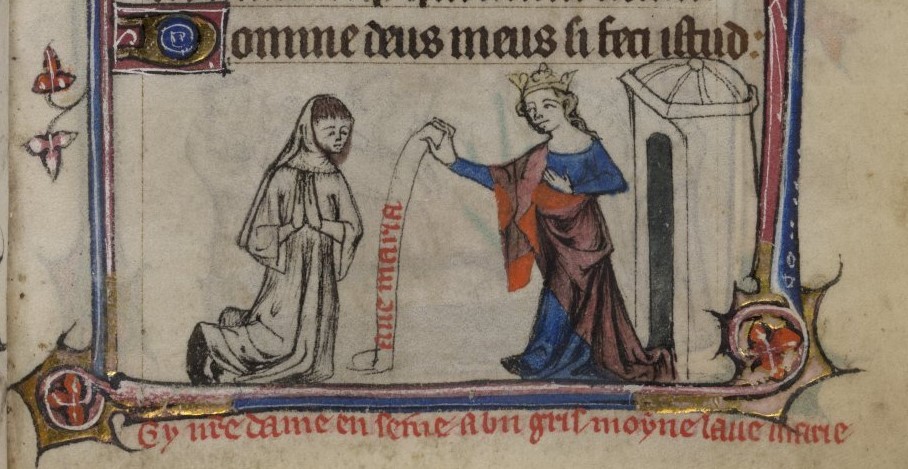 Domine deus meus si feci istud:
aue maria
Cy nre dame enseine a vn gris moyne laue marie